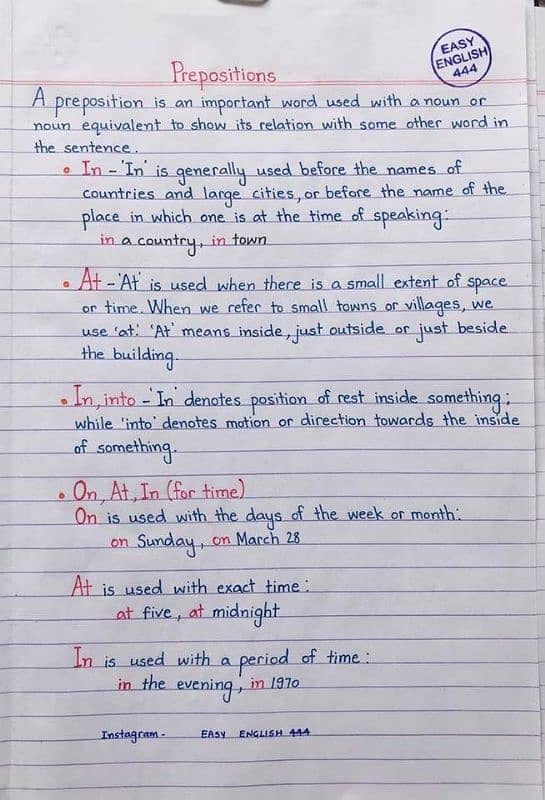 EASY
ENGLISH
444
Prepositions
A preposition is an important word used with a noun or
noun equivalent to show its relation with some other word in
the sentence.
• In - 'In' is generally used before the names of
countries and large cities, or before the name of the
place in which one is at the time of speaking:
in a country, in town
• At - 'At' is used when there is a small extent of space
or time. When we refer to small towns or villages, we
use 'at'. 'At' means inside, just outside or just beside
the building.
• In, into - 'In' denotes position of rest inside something;
while 'into' denotes motion or direction towards the inside
of something.
• On, At, In (for time)
On is used with the days of the week or month:
on Sunday, on March 28
At is used with exact time:
at five, at midnight
In is used with a period of time:
in the evening, in 1970
Instagram - EASY ENGLISH 444